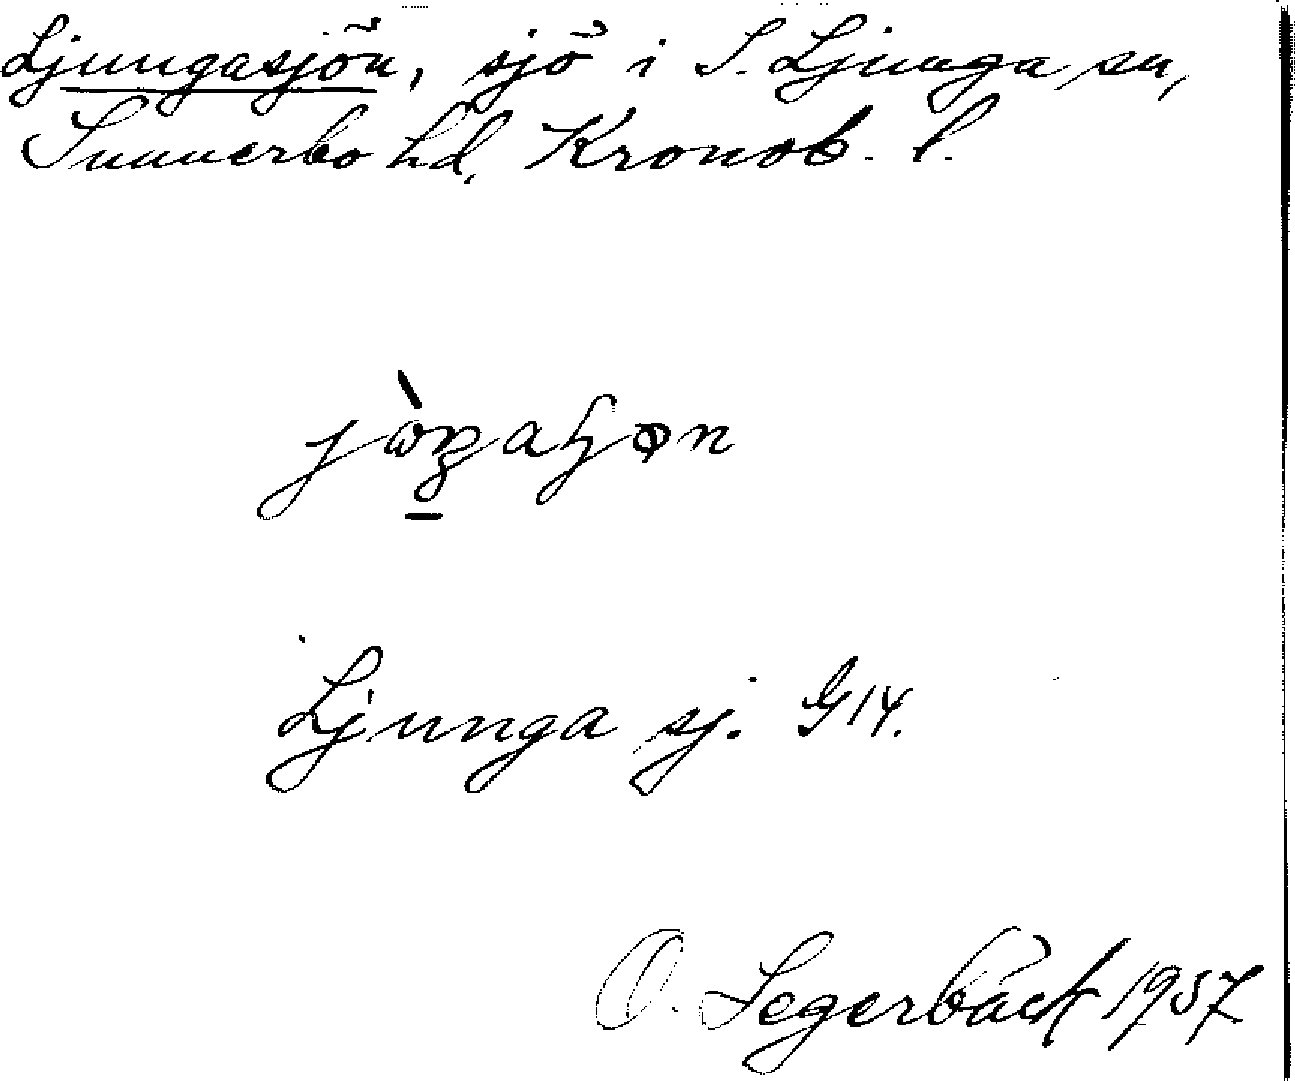 Ljungasjön, sjö i S. Ljunga sn,
Sunnerbo hd, Kronob. l.
Ljunga sj. G14.
O. Segerbäck 1937